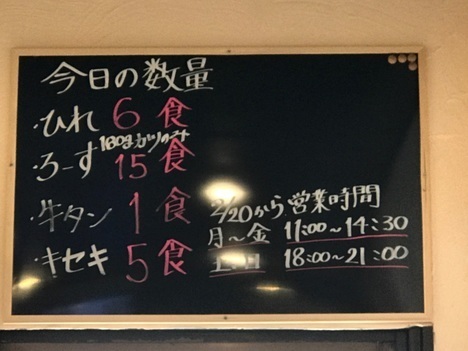 今日の数量
・ひれ 6食
180gカツのみ
・ろーす 15食
・牛タン 1食
・キセキ 5食
2/20から 営業時間
月〜金 11:00〜14:30
土・日 18:00〜21:00